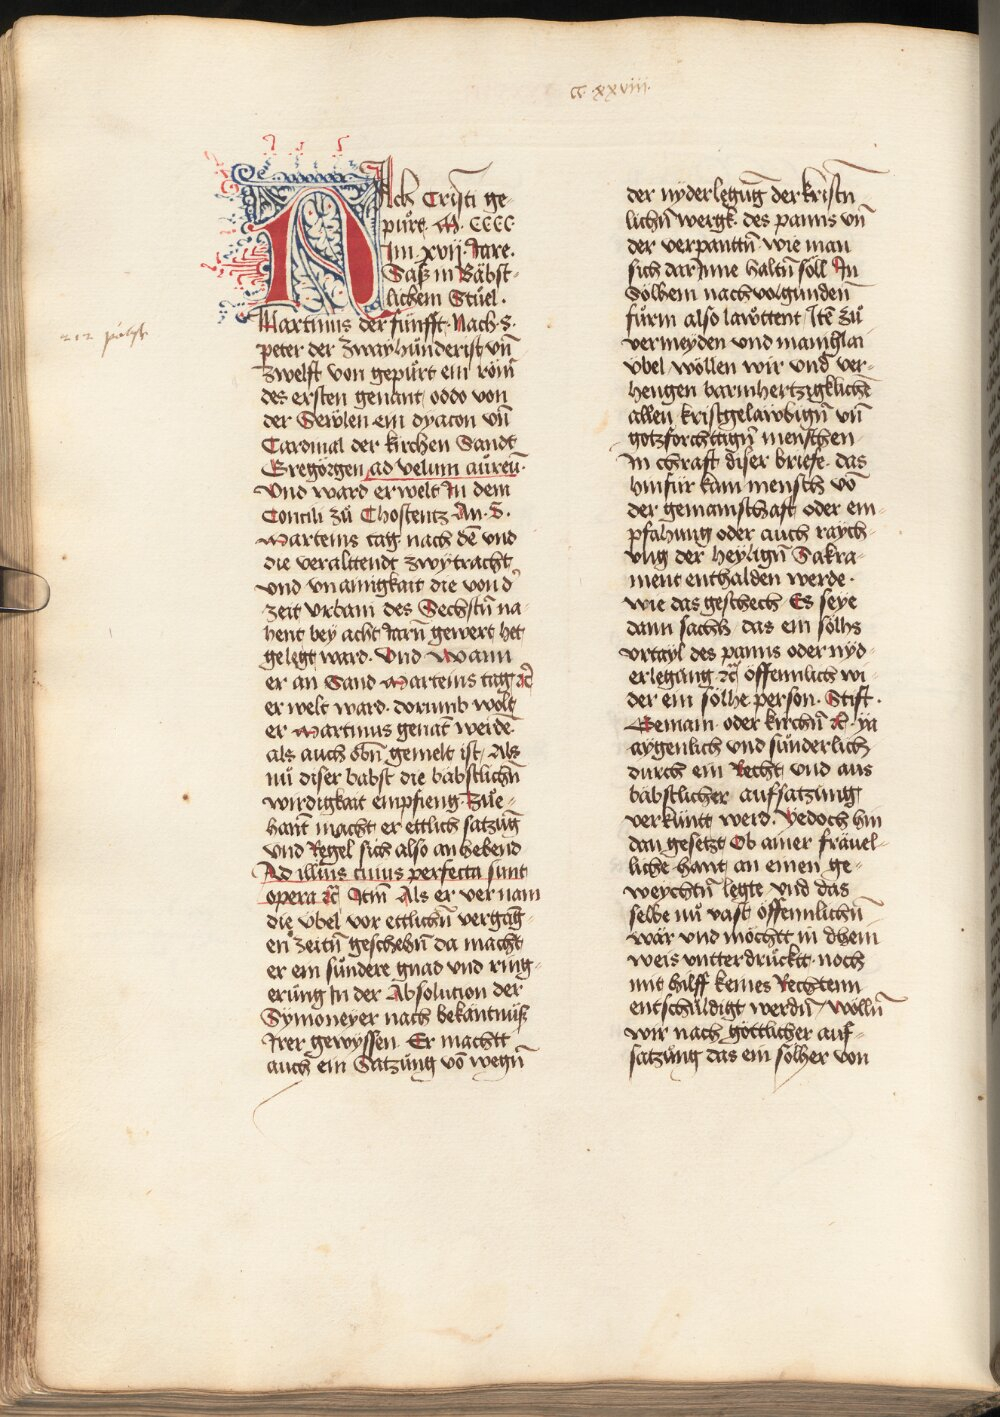 cc xxviii
NAch Cristi ge
pürt · M · CCCC
Im · xvij · Jare ·
Sasz in Bäbst-
lichem Stůel ·
Martinus der fünfft · Nach · S ·
peter der zwayhünderist vn̄
zwelft von gepürt ein röm̄
des ersten genant / oddo von
der Sewlen ein dyacon vn̄
Cardinal der kirchen Sandt
Gregörgen ad velum aureū ·
Vnd ward erwelt In dem
Concili zů Chostentz An · S ·
Marteins tag nach dē vnd
die veralttendt zwytracht
vnd vnainigkait die von d'
zeit vrbani des Sechstn̄ na-
hent bey acht Jarn̄ gewert het
gelegt ward · Vnd Wann
er an Sand Marteins tag ꝛc̄
erwelt ward · dorumb wolt
er Martinus genāt werdē
als auch obn̄ gemelt ist / Als
nu diser babst die bäbstlichn̄
wirdigkait empfieng · Zůe-
hant macht er ettlich satzūg
vnd Regel sich also anhebend
Ad illius cuius perfecta sunt
opera ꝛc̄ Itm̄ Als er vernam
die vbel vor ettlichn̄ vergāg-
en zeitn̄ geschehn̄ da macht
er ein sündere gnad vnd ring-
erüng In der Absolution der
Symoneyer nach bekantnüsz
Irer gewyssen · Er machtt
auch ein Satzüng vō wegn̄
212 pabst
der nyderlegūg der kristn̄
lichn̄ wergk · des panns vn̄
der verpanttn̄ wie man
sich darInne haltn̄ söll In
Sölhem nachvolgünden̄
fürm also lawttent / Itē zů
vermeyden vnd manig̃lai
vbel / wöllen wir vnd ver-
hengen barmhertzigklichē
allen kristgelawbign̄ vn̄
gotzforchttign̄ menschen
In chraft diser briefe · das
hinfür kain mensch vō
der gemainschaft oder em-
pfahung oder auch raych-
vng der heylign̄ Sakra-
ment enthalden werde ·
wie das geschech Es seye
dann sach / das ein sölhs
vrtayl des panns oder nyd-
erlegüng ꝛc̄ öffennlich wi-
der ein sölhe person · Stift ·
Gemain · oder kirchn̄ ꝛc̄ · ya
aygenlich vnd sünderlich
durch ein Recht vnd aus
bäbstlicher aufsatzung
verkünt werd · Yedoch hin
dan gesetzt Ob ainer fräuel-
liche hant an einen ge-
weychtn̄ legte vnd das
selbe nu vast öffennlichn̄
wär vnd möchtt in dhein
weis vntterdrücktt · noch
mit hilff keines Rechtenn
entschuldigt werdn̄ / Wölln̄
wir nach göttlicher auf-
satzüng das ein sölher von